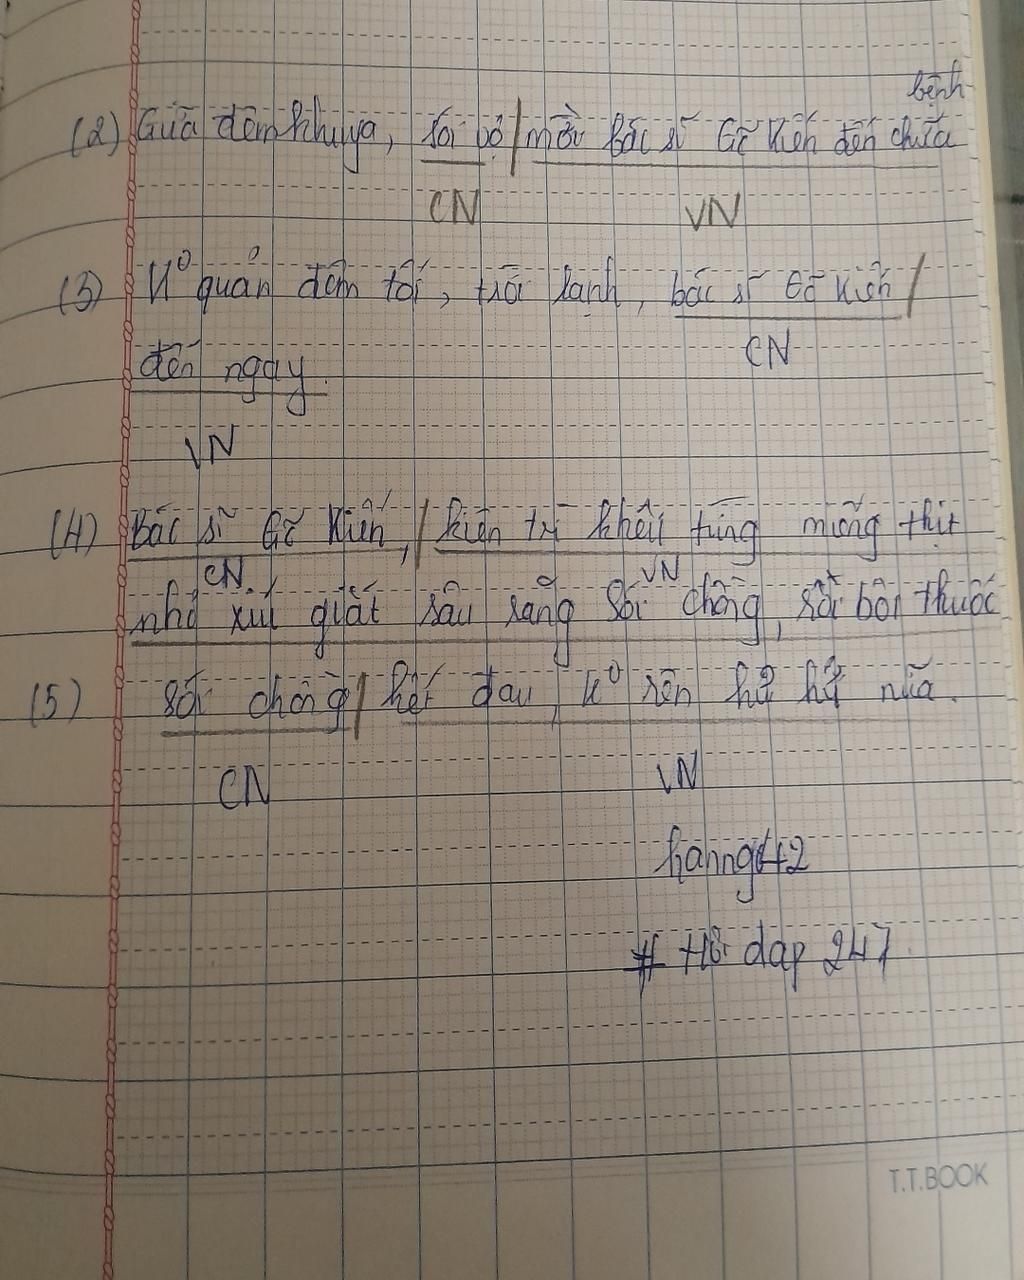 bệnh
(2) Giữa đêm khuya, sói vợ / mời bác sĩ Gõ Kiến đến chữa
CN VN
(3) K° quản đêm tối, trời lạnh, bác sĩ Gõ Kiến /
CN
đến ngay.
VN
(4) Bác sĩ Gõ Kiến, / kiên trì khều từng miếng thịt
CN. VN
nhỏ xíu giắt sâu răng Sói chồng, rồi bôi thuốc
(5) Sói chồng / hết đau, k° rên hừ hừ nữa.
CN VN
hanng642
# Hỏi đáp 247.
T.T.BOOK